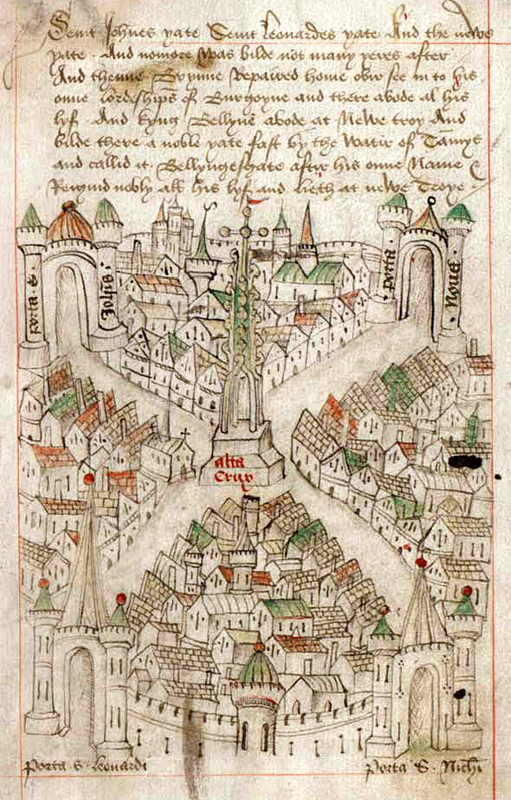 Seint Johnes yate Seint Leonardes yate And the newe
yate. And nomore was bilde not many yeres after
And thenne Brynne Repaired home over see in to his
onne lordeships of Burgoyne and there abode al his
lyf. And kyng Bellyne abode at Newe troy And
bilde there a noble yate fast by the Watir of Tamys
and callid it Bellyngesgate after his onne Name &
Reigned nobly all his lyf and lieth at newe Troye.
Porta S. Johis.
Porta Noua
alta
Crux
Porta S Leonardi
Porta S. Nichi